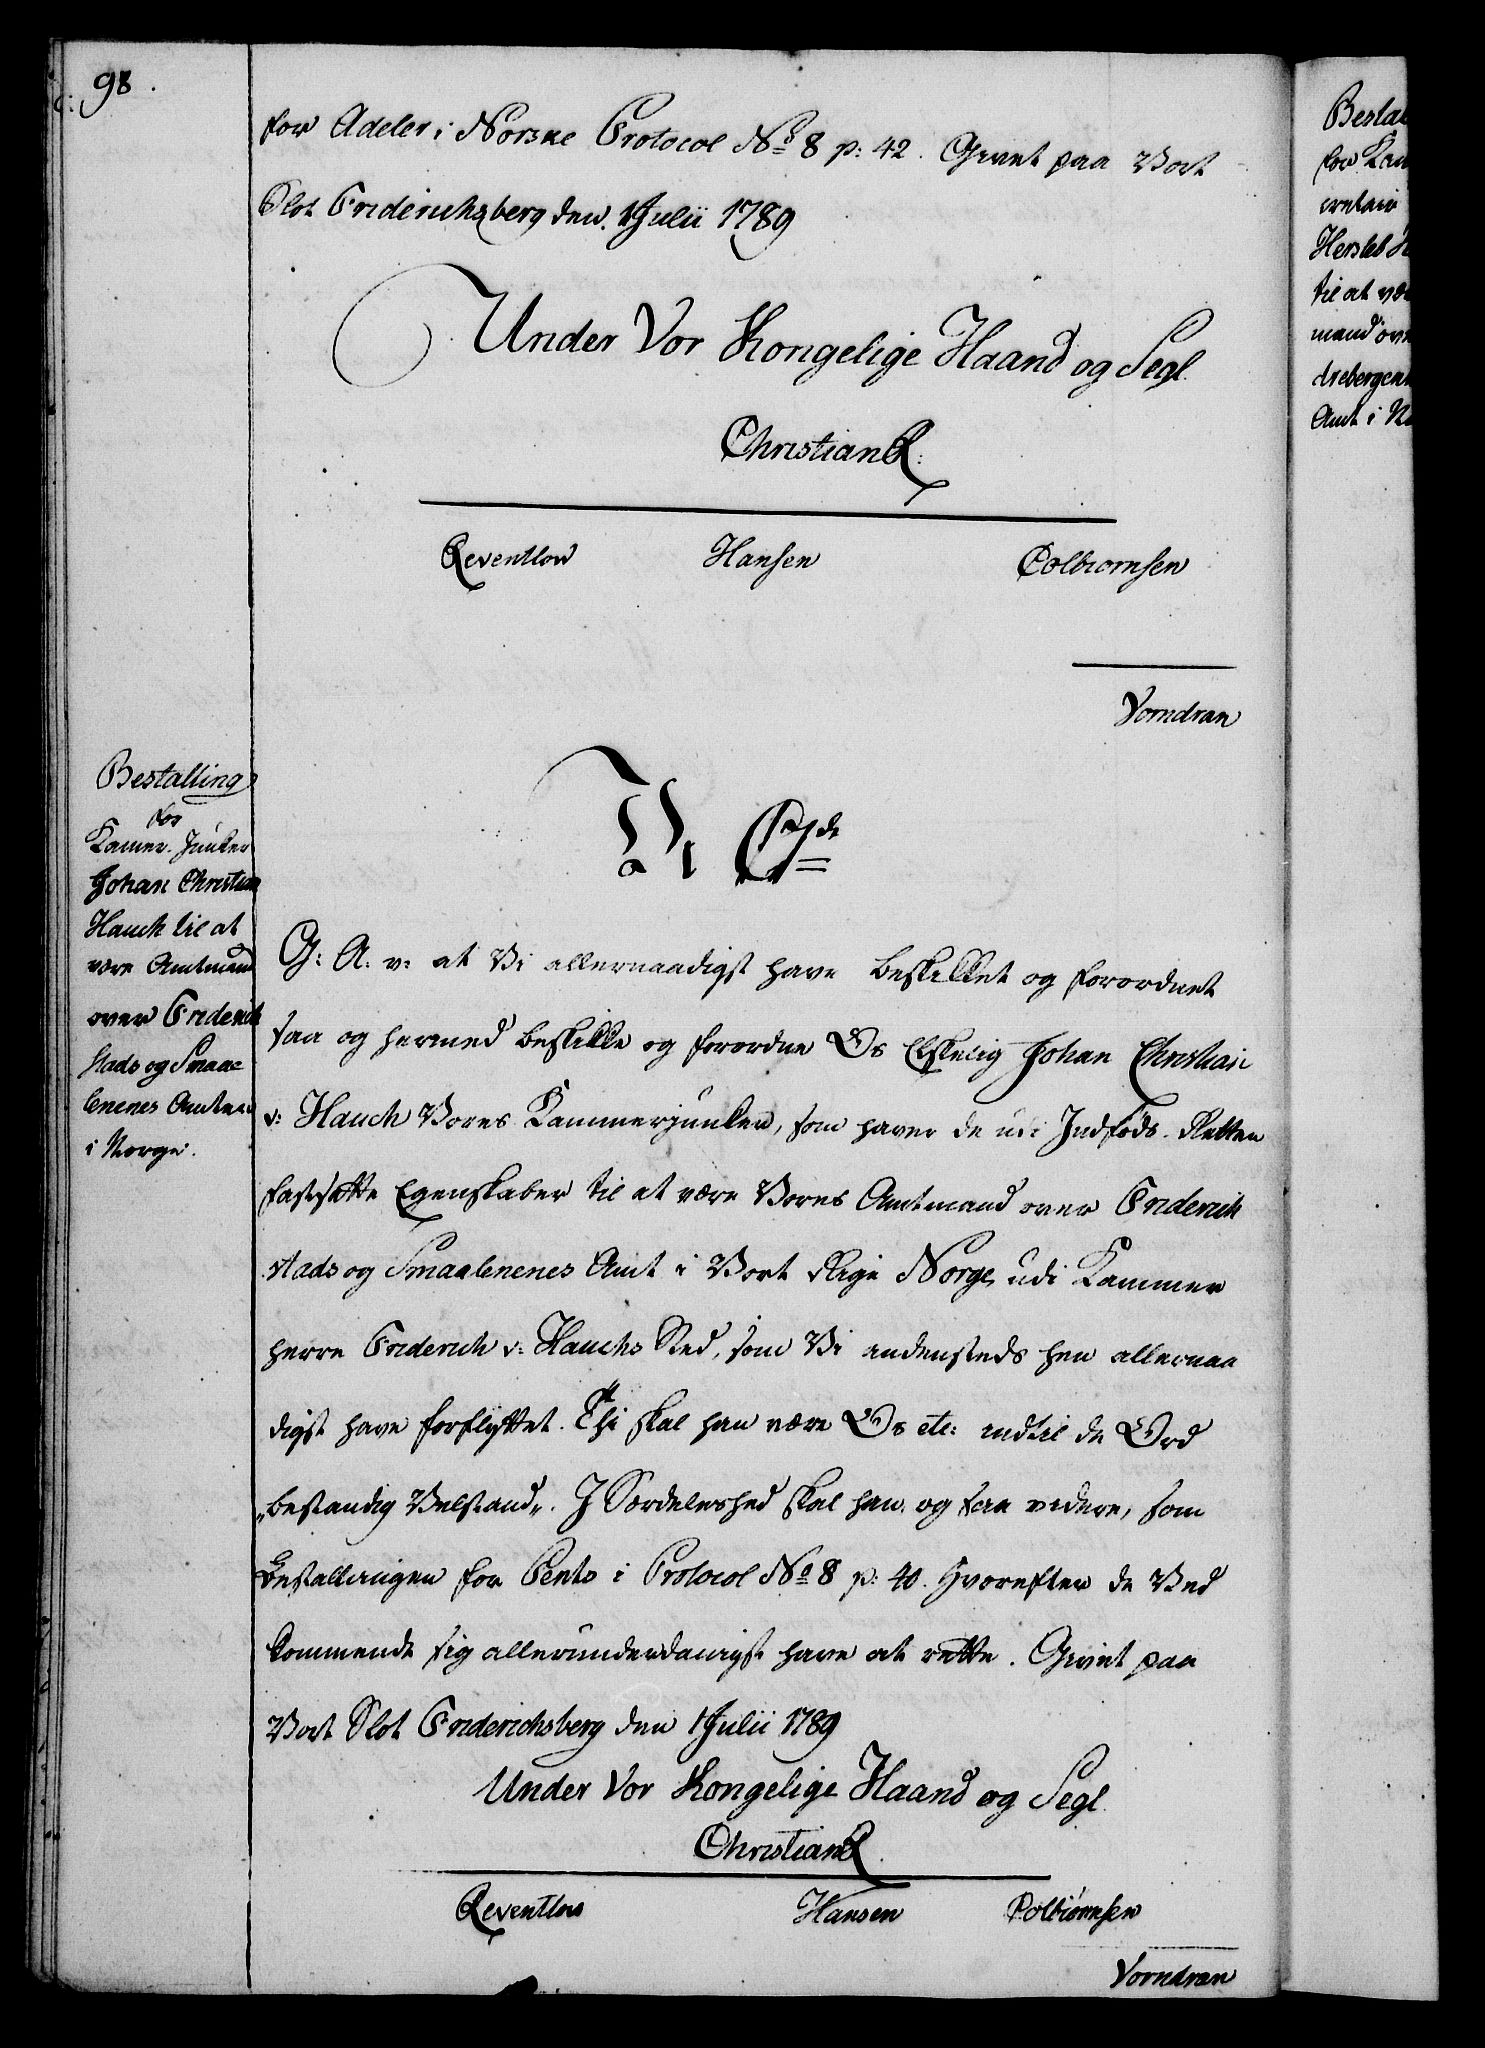 98.
for Adeler i Norske Protocol No 8 p: 42. Givet paa Vort
Slot Friderichsberg den 1 Julii 1789
Under Vor Kongelige Haand og Segl.
Christian R:
Reventlow Hansen Colbiørnsen
Vorndran
Bestalling
for
Kamer-Junker
Johan Christian
Hauch til at
være Amtmand
over Friderich
stads og Smaae
lenenes Amter
i Norge.
Vi C 7de
G: A: v: at Vi allernaadigst have beskikket og forordnet
saa og hermed beskikke og forordne Os Elskelig Johan Christian
v: Hauch Vores Kammerjunker, som haver de udi Indføds-Retten
fastsatte Egenskaber til at være Vores Amtmand over Friderich
stads og Smaalenenes Amt i Vort Rige Norge, udi Kammer
herre Friderich v: Hauchs Sted, som Vi andensteds hen allernaa
digst have forflyttet. Thi skal han være Os etc: indtil de Ord
„bestandig Velstand„. I Særdeleshed skal han og saa videre, som
Bestallingen for Pentz i Protocol No 8 p: 40. Hvorefter de Ved
kommende sig allerunderdanigst have at rette. Givet paa
Vort Slot Friderichsberg den 1 Julii 1789
Under Vor Kongelige Haand og Segl.
Christian R.
Reventlow Hansen Colbiørnsen
Vorndran
Bestal
for Kam
cretair
Hersleb
til at væ
mand ov
drebergen
Amt i No